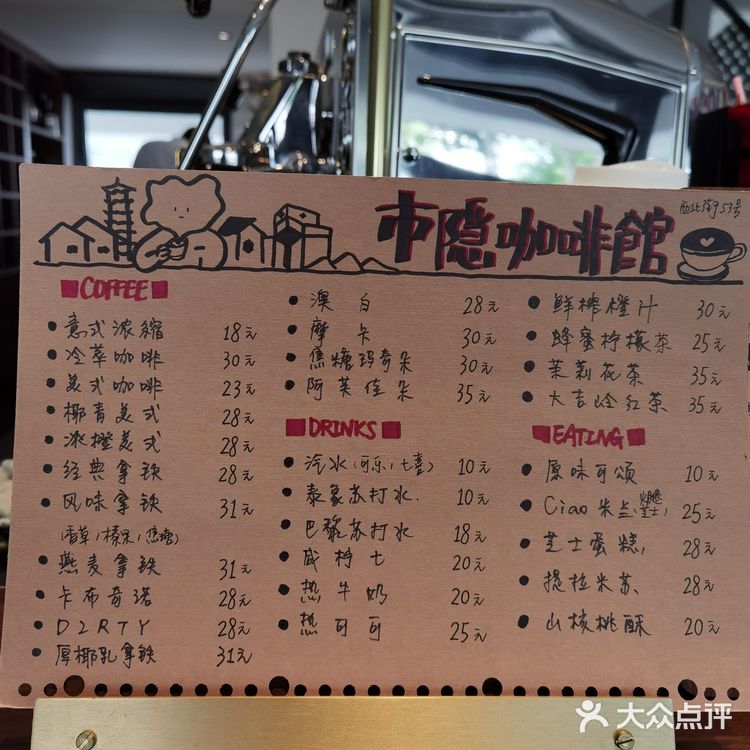 市隐咖啡館
西北街53号
COFFEE
意式浓縮 18元
冷萃咖啡 30元
美式咖啡 23元
椰青美式 28元
冰橙美式 28元
经典拿铁 28元
风味拿铁 31元
(香草/榛果/焦糖)
燕麦拿铁 31元
卡布奇诺 28元
D2RTY 28元
厚椰乳拿铁 31元
澳白 28元
摩卡 30元
焦糖玛奇朵 30元
阿芙佳朵 35元
DRINKS
汽水(可乐/七喜) 10元
泰象苏打水 10元
巴黎苏打水 18元
咸柠七 20元
热牛奶 20元
热可可 25元
鲜榨橙汁 30元
蜂蜜柠檬茶 25元
茉莉花茶 35元
大吉岭红茶 35元
EATING
原味可颂 10元
Ciao米兰(火腿芝士) 25元
芝士蛋糕 28元
提拉米苏 28元
山核桃酥 20元
大众点评